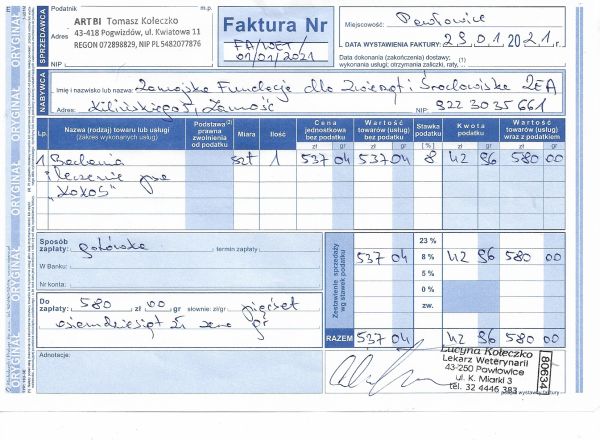 ORYGINAŁ ORYGINAŁ ORYGINAŁ ORYGINAŁ ORYGINAŁ
SPRZEDAWCA
Podatnik m.p.
ARTBI Tomasz Kołeczko
Adres 43-418 Pogwizdów, ul. Kwiatowa 11
REGON 072898829, NIP PL 5482077876
Faktura Nr
FA/WET/
01/01/2021
Miejscowość: Pawłowice
DATA WYSTAWIENIA FAKTURY: 29.01.2021 r.
Data dokonania (zakończenia) dostawy;
wykonania usługi; otrzymania zaliczki, raty,
NABYWCA
Imię i nazwisko lub nazwa: Zamojska Fundacja dla Zwierząt i Środowiska ZEA
Adres: Kilińskiego Zamość NIP: 922 3035 661
Lp.
Nazwa (rodzaj) towaru lub usługi
(zakres wykonanych usług)
Podstawa
prawna
zwolnienia
od podatku
Miara
Ilość
Cena
jednostkowa
bez podatku
zł gr
Wartość
towarów (usług)
bez podatku
zł gr
Stawka
podatku
[%]
Kwota
podatku
zł gr
Wartość
towarów (usług)
wraz z podatkiem
zł gr
1 Badania szt 1 537 04 537 04 8 42 96 580 00
i leczenie psa
„KOKOS"
Sposób
zapłaty: gotówka termin zapłaty
W Banku:
Nr konta:
Zestawienie sprzedaży
wg stawek podatku
23 %
537 04 8 % 42 96 580 00
5 %
0 %
zw.
Do
zapłaty: 580 zł 00 gr słownie: zł/gr pięćset
osiemdziesiąt zł zero gr
RAZEM 537 04 42 96 580 00
Adnotacje:
Lucyna Kołeczko
Lekarz Weterynarii
43-250 Pawłowice
ul. K. Miarki 3
tel. 32 4446 383
80634
podpis wystawcy faktury